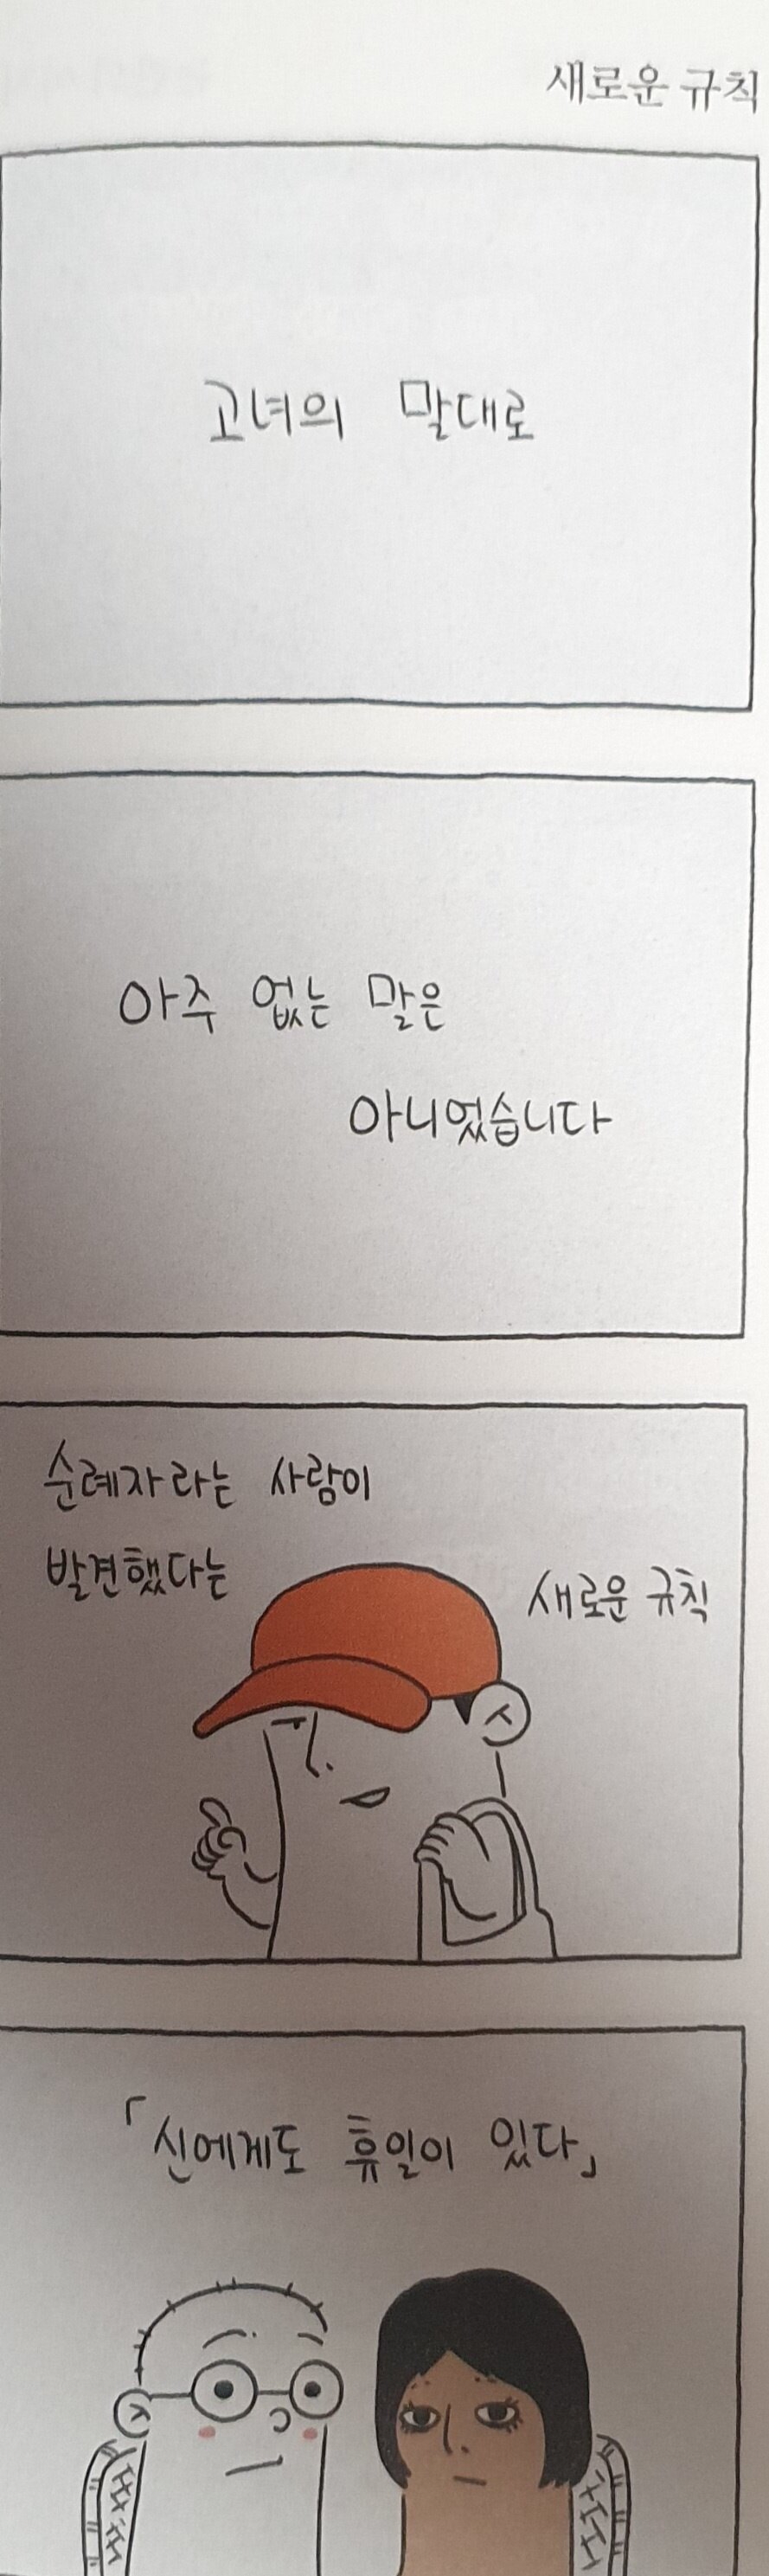 새로운 규칙
고녀의 말대로
아주 없는 말은
아니었습니다
순례자라는 사람이
발견했다는
새로운 규칙
「신에게도 휴일이 있다」